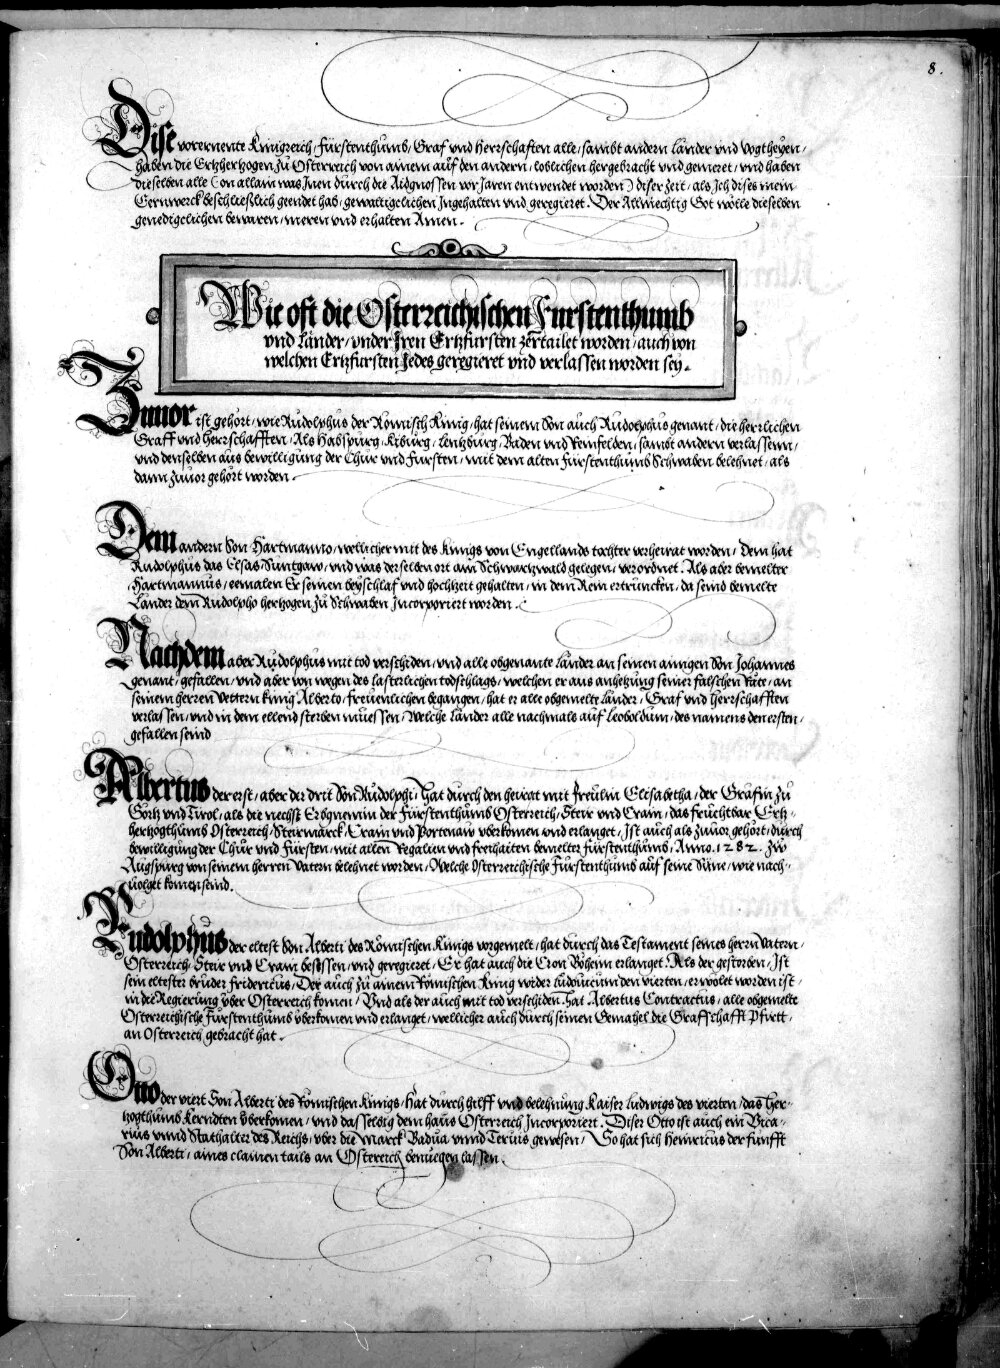 8.
Dise vorernente Künigreich, Fürstenthumb, Graf vnd Herrschaften alle, sambt andern Länder vnd Vogtheyen,
haben die Ertzhertzogen zu Österreich von ainem auf den andern, loblichen hergebracht vnd gemeret, vnd haben
dieselben alle (on allain was Inen durch die Aidgnossen vor Jaren entwendet worden) diser zeit, als Ich dises mein
Eernwerck beschließlich geendet hab, gewaltigclichen Ingehalten vnd geregieret. Der Allmechtig Got wölle dieselben
genedigclichen bewaren, meren vnd erhalten Amen.
Wie oft die Österreichischen Furstenthumb
vnd Länder, vnder Iren Ertzfursten zertailet worden, auch von
welchen Ertzfursten Jedes geregieret vnd verlassen worden sey.
Zuuor ist gehört, wie Rudolphus der Römisch Künig, hat seinem Son auch Rudolphus genant, die herrlichen
Graff vnd Herrschafften, Als Habspurg, Kiburg, Lentzburg, Baden vnd Reinfelden, sambt andern verlassen,
vnd denselben aus bewilligung der Chur vnd Fürsten, mit dem alten Fürstenthumb Schwaben belehnet, als
dann zuuor gehört worden.
Dem andern Son Hartmanno, wellicher mit des Künigs von Engellands tochter verheirat worden, Dem hat
Rudolphus das Elsas, Suntgaw, vnd was derselben ort am Schwartzwald gelegen, verordnet. Als aber bemelter
Hartmannus, eemalen Er seinen beyschlaf vnd hochzeit gehalten, in dem Rein ertruncken, da seind bemelte
Länder dem Rudolpho hertzogen zu Schwaben Incorporiert worden.
Nachdem aber Rudolphus mit tod verschiden, vnd alle obgenante Länder an seinen ainigen Son Johannes
genant, gefallen, vnd aber von wegen des lasterlichen todschlags, welchen er aus anhetzung seiner falschen Räte, an
seinem herren Vettern Künig Alberto, freuenlichen begangen, hat er alle obgemelte Länder, Graf vnd Herrschafften
verlassen, vnd in dem ellend sterben müessen, Welche Länder alle nachmals auf Leopoldum, des namens den ersten,
gefallen seind
Albertus der erst, aber der drit Son Rudolphi, Hat durch den heirat mit Freulin Elisabetha, der Gräfin zu
Görtz vnd Tirol, als die nechst Erbgnemin der Fürstenthumb Österreich, Steir vnd Crain, das fruchtbar Ertz-
hertzogthumb Österreich, Steirmarck, Crain vnd Portenaw vberkomen vnd erlanget, Ist auch als zuuor gehört, durch
bewilligung der Chur vnd Fürsten, mit allen Regalien vnd freihaiten bemelter fürstenthumb, Anno. 1282. zu
Augspurg von seinem herren Vatern belehnet worden, Welche Österreichische Fürstenthumb auf seine Süne, wie nach-
uolget komen seind.
Rudolphus der eltest Son Alberti des Römischen Künigs vorgemelt, hat durch das Testament seines herrn Vatern,
Österreich, Steir vnd Crain besessen, vnd geregieret, Er hat auch die Cron Böheim erlanget. Als der gestorben, Ist
sein eltester bruder Fridericus, Der auch zu ainem Römischen Künig wider Ludouicum den vierten, erwölt worden ist,
in die Regierung vber Österreich komen, Vnd als der auch mit tod verschiden, hat Albertus Contractus, alle obgemelte
Österreichische Fürstenthumb vberkomen vnd erlanget, wellicher auch durch seinen Gemahel die Graffschafft Pfirtt,
an Österreich gebracht hat.
Otto der viert Son Alberti des Römischen Künigs, Hat durch hilff vnd belehnung Kaiser Ludwigs des vierten, das Her-
tzogthumb Kerndten vberkomen, vnd dasselbig dem haus Österreich Incorporiert. Diser Otto ist auch ein Vica-
rius vnnd Stathalter des Reichs, vber die Marck Padua vnnd Teruis gewesen, So hat sich Heinricus der funfft
Son Alberti, aines clainen tails an Östereich benuegen lassen.